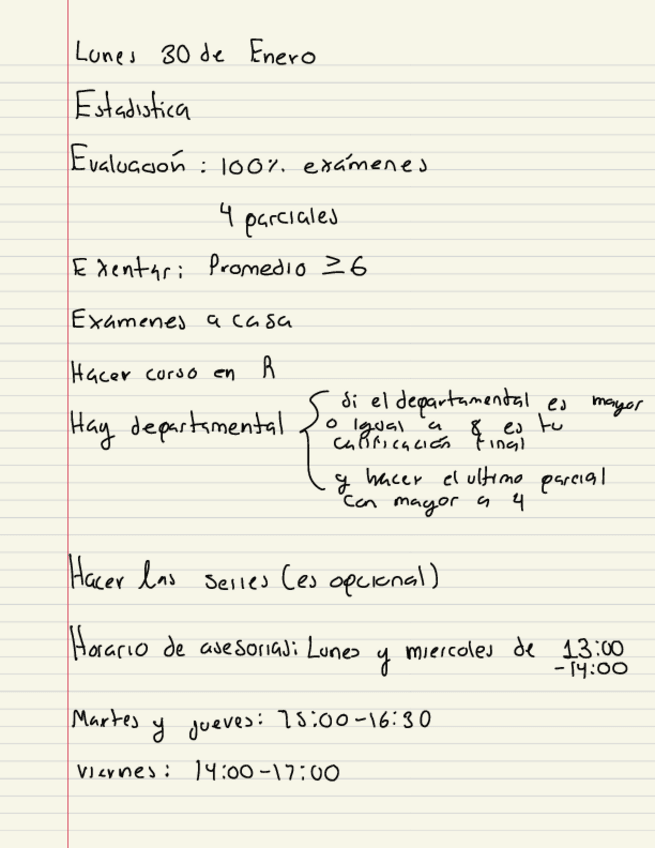 Lunes 30 de Enero
Estadistica
Evaluación: 100% exámenes
4 parciales
Exentar: Promedio ≥6
Examenes a casa
Hacer curso en R
Hay departamental { Si el departamental es mayor
o igual a 8 es tu
calificación final
y hacer el ultimo parcial
con mayor a 4
Hacer las series (es opcional)
Horario de asesorias: Lunes y miercoles de 13:00
-14:00
Martes y jueves: 15:00-16:30
viernes: 14:00-17:00